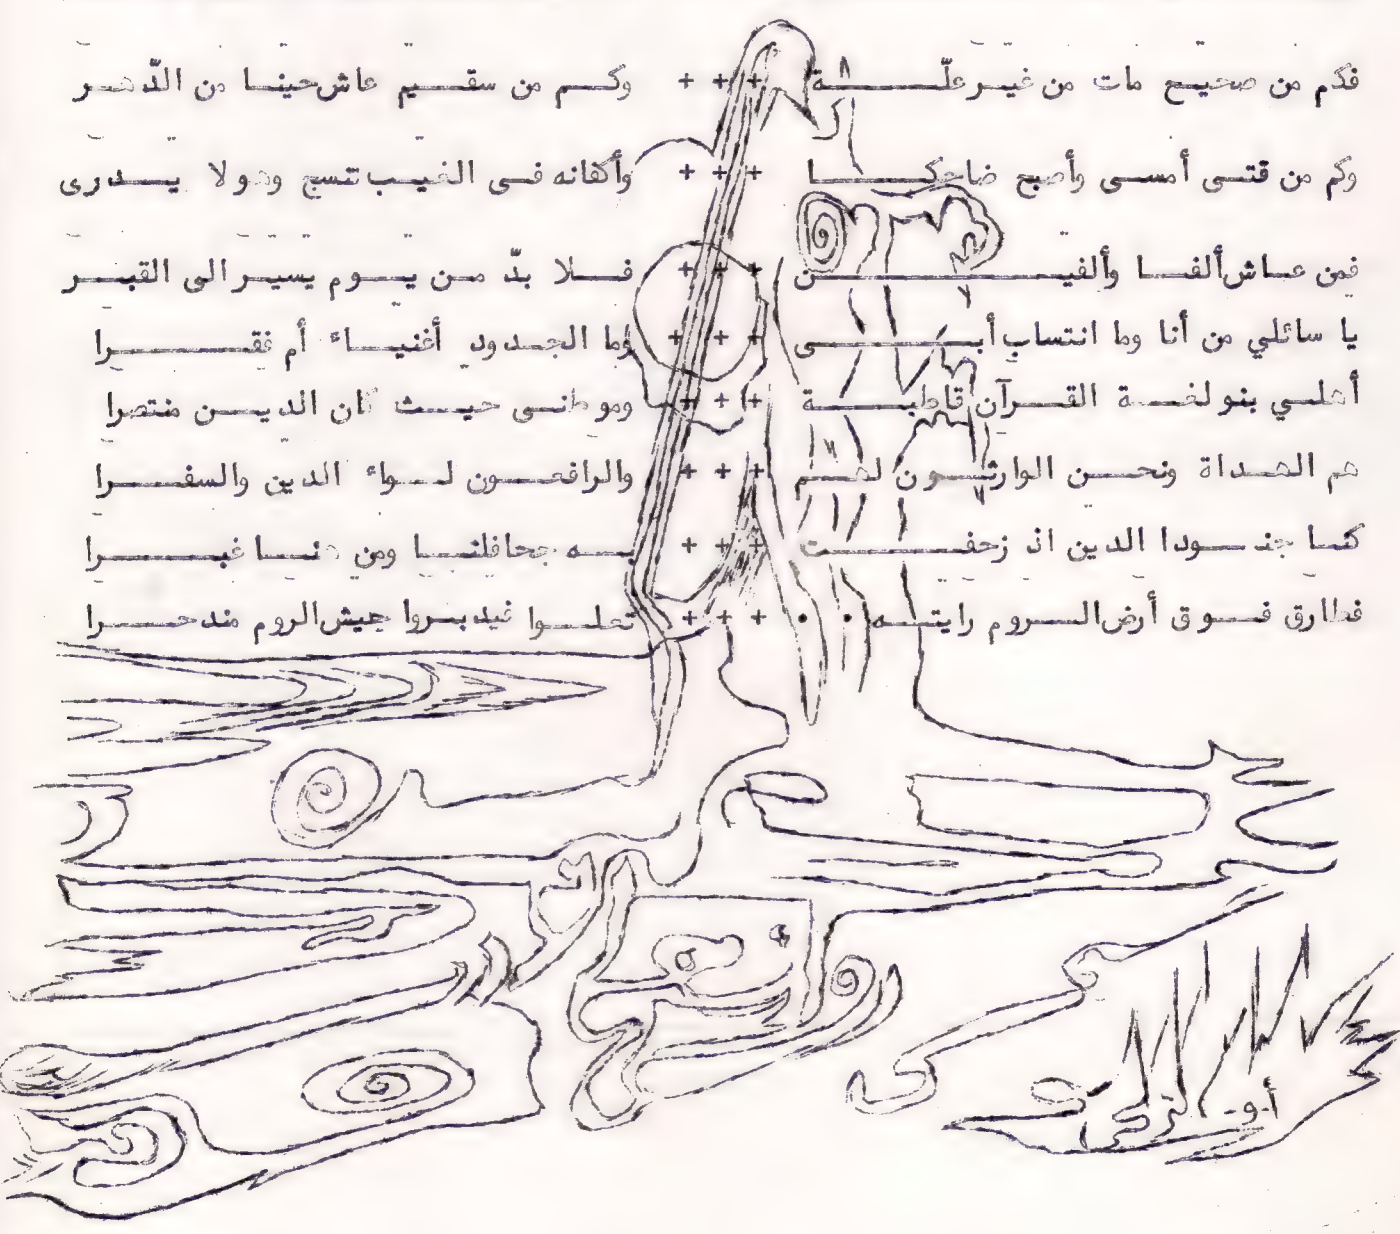 فكم من صحيح مات من غير علّة +++ وكم من سقيم عاش حينا من الدّهر
وكم من فتى أمسى وأصبح ضاحكا +++ وأكفانه فى الغيب تنسج وهو لا يدرى
فمن عاش ألفا وألفين +++ فلا بدّ من يوم يسير الى القبر
يا سائلي من أنا وما انتساب أبى +++ وما الجدود أغنياء أم فقرا
أهلي بنو لغة القرآن قاطبة +++ وموطنى حيث كان الدين منتصرا
هم الهداة ونحن الوارثون لهم +++ والرافعون لواء الدين والسفرا
كنا جنودا الدين اذ زحفت +++ به جحافلنا ومن هنا غبرا
فطارق فوق أرض الروم رايته +++ تعلوا فيدبروا جيش الروم مندحرا
أ.و. التركى